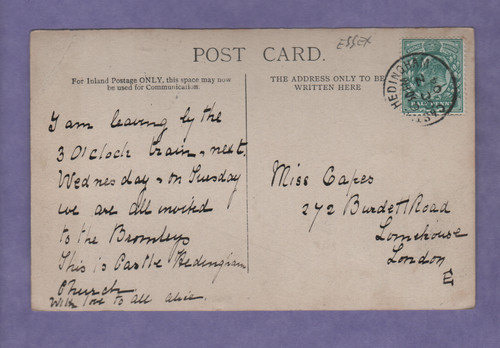 ESSEX
POST CARD.
For Inland Postage ONLY, this space may now
be used for Communication.
THE ADDRESS ONLY TO BE
WRITTEN HERE
HEDINGHAM
I am leaving by the
3 O'Clock train, next
Wednesday & on Tuesday
we are all invited
to the Bromleys
This is Castle Hedingham
Church
With love to all Alice.
Miss Capes
272 Burdett Road
Limehouse
London
E